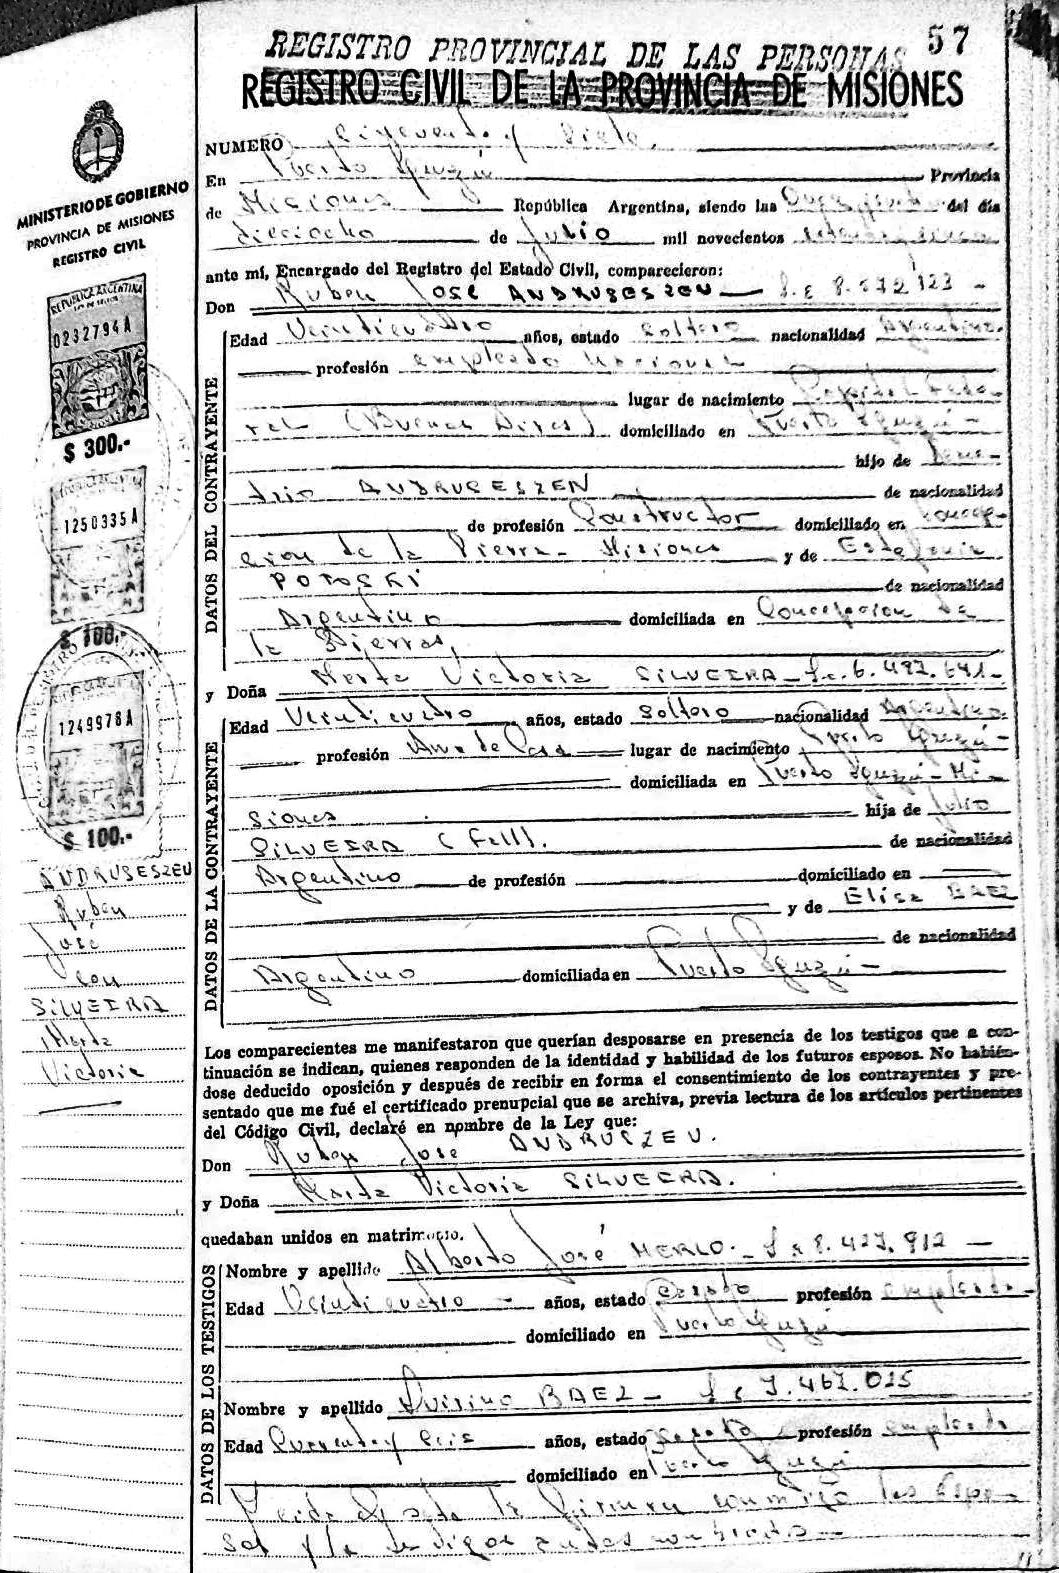 57
REGISTRO PROVINCIAL DE LAS PERSONAS
REGISTRO CIVIL DE LA PROVINCIA DE MISIONES
MINISTERIO DE GOBIERNO
PROVINCIA DE MISIONES
REGISTRO CIVIL
REPUBLICA ARGENTINA
0232794A
$ 300.-
1250335A
$ 100.-
1249978A
$ 100.-
ANDRUSESZEN
Ruben
José
con
SILVEIRA
Marta
Victoria
NUMERO Cincuenta y Siete
En Puerto Iguazú Provincia
de Misiones República Argentina, siendo las del día
dieciocho de Julio mil novecientos
ante mí, Encargado del Registro del Estado Civil, comparecieron:
Don Ruben José ANDRUSESZEN
DATOS DEL CONTRAYENTE
Edad Veinticuatro años, estado Soltero nacionalidad Argentina
profesión empleado Nacional
lugar de nacimiento Capital Fede-
ral (Buenos Aires) domiciliado en Puerto Iguazú-
hijo de
ANDRUSESZEN de nacionalidad
de profesión Constructor domiciliado en Concep-
cion de la Sierra- Misiones y de Estefania
POTOSKI de nacionalidad
Argentina domiciliada en Concepcion de
la Sierra,
y Doña Marta Victoria SILVEIRA
DATOS DE LA CONTRAYENTE
Edad Veinticuatro años, estado Soltera nacionalidad Argentina
profesión Ama de Casa lugar de nacimiento Puerto Iguazú-
domiciliada en Puerto Iguazú-Mi-
siones hija de Julio
SILVEIRA (Fall). de nacionalidad
Argentino de profesión domiciliado en
y de Elisa BAEZ
de nacionalidad
Argentina domiciliada en Puerto Iguazú-
Los comparecientes me manifestaron que querían desposarse en presencia de los testigos que a con-
tinuación se indican, quienes responden de la identidad y habilidad de los futuros esposos. No habién-
dose deducido oposición y después de recibir en forma el consentimiento de los contrayentes y pre-
sentado que me fué el certificado prenupcial que se archiva, previa lectura de los artículos pertinentes
del Código Civil, declaré en nombre de la Ley que:
Don Ruben José ANDRUSZEN.
y Doña Marta Victoria SILVEIRA.
quedaban unidos en matrimonio.
DATOS DE LOS TESTIGOS
Nombre y apellido Alberto José MERLO.- 8.427.912 -
Edad Veinticuatro - años, estado Casado profesión empleado-
domiciliado en Puerto Iguazú
Nombre y apellido Quirino BAEZ - 7.467.025
Edad Cuarenta y seis años, estado Casado profesión empleado
domiciliado en Puerto Iguazú
Leida el acta la firman conmigo los espo-
sos y los testigos antes nombrados-